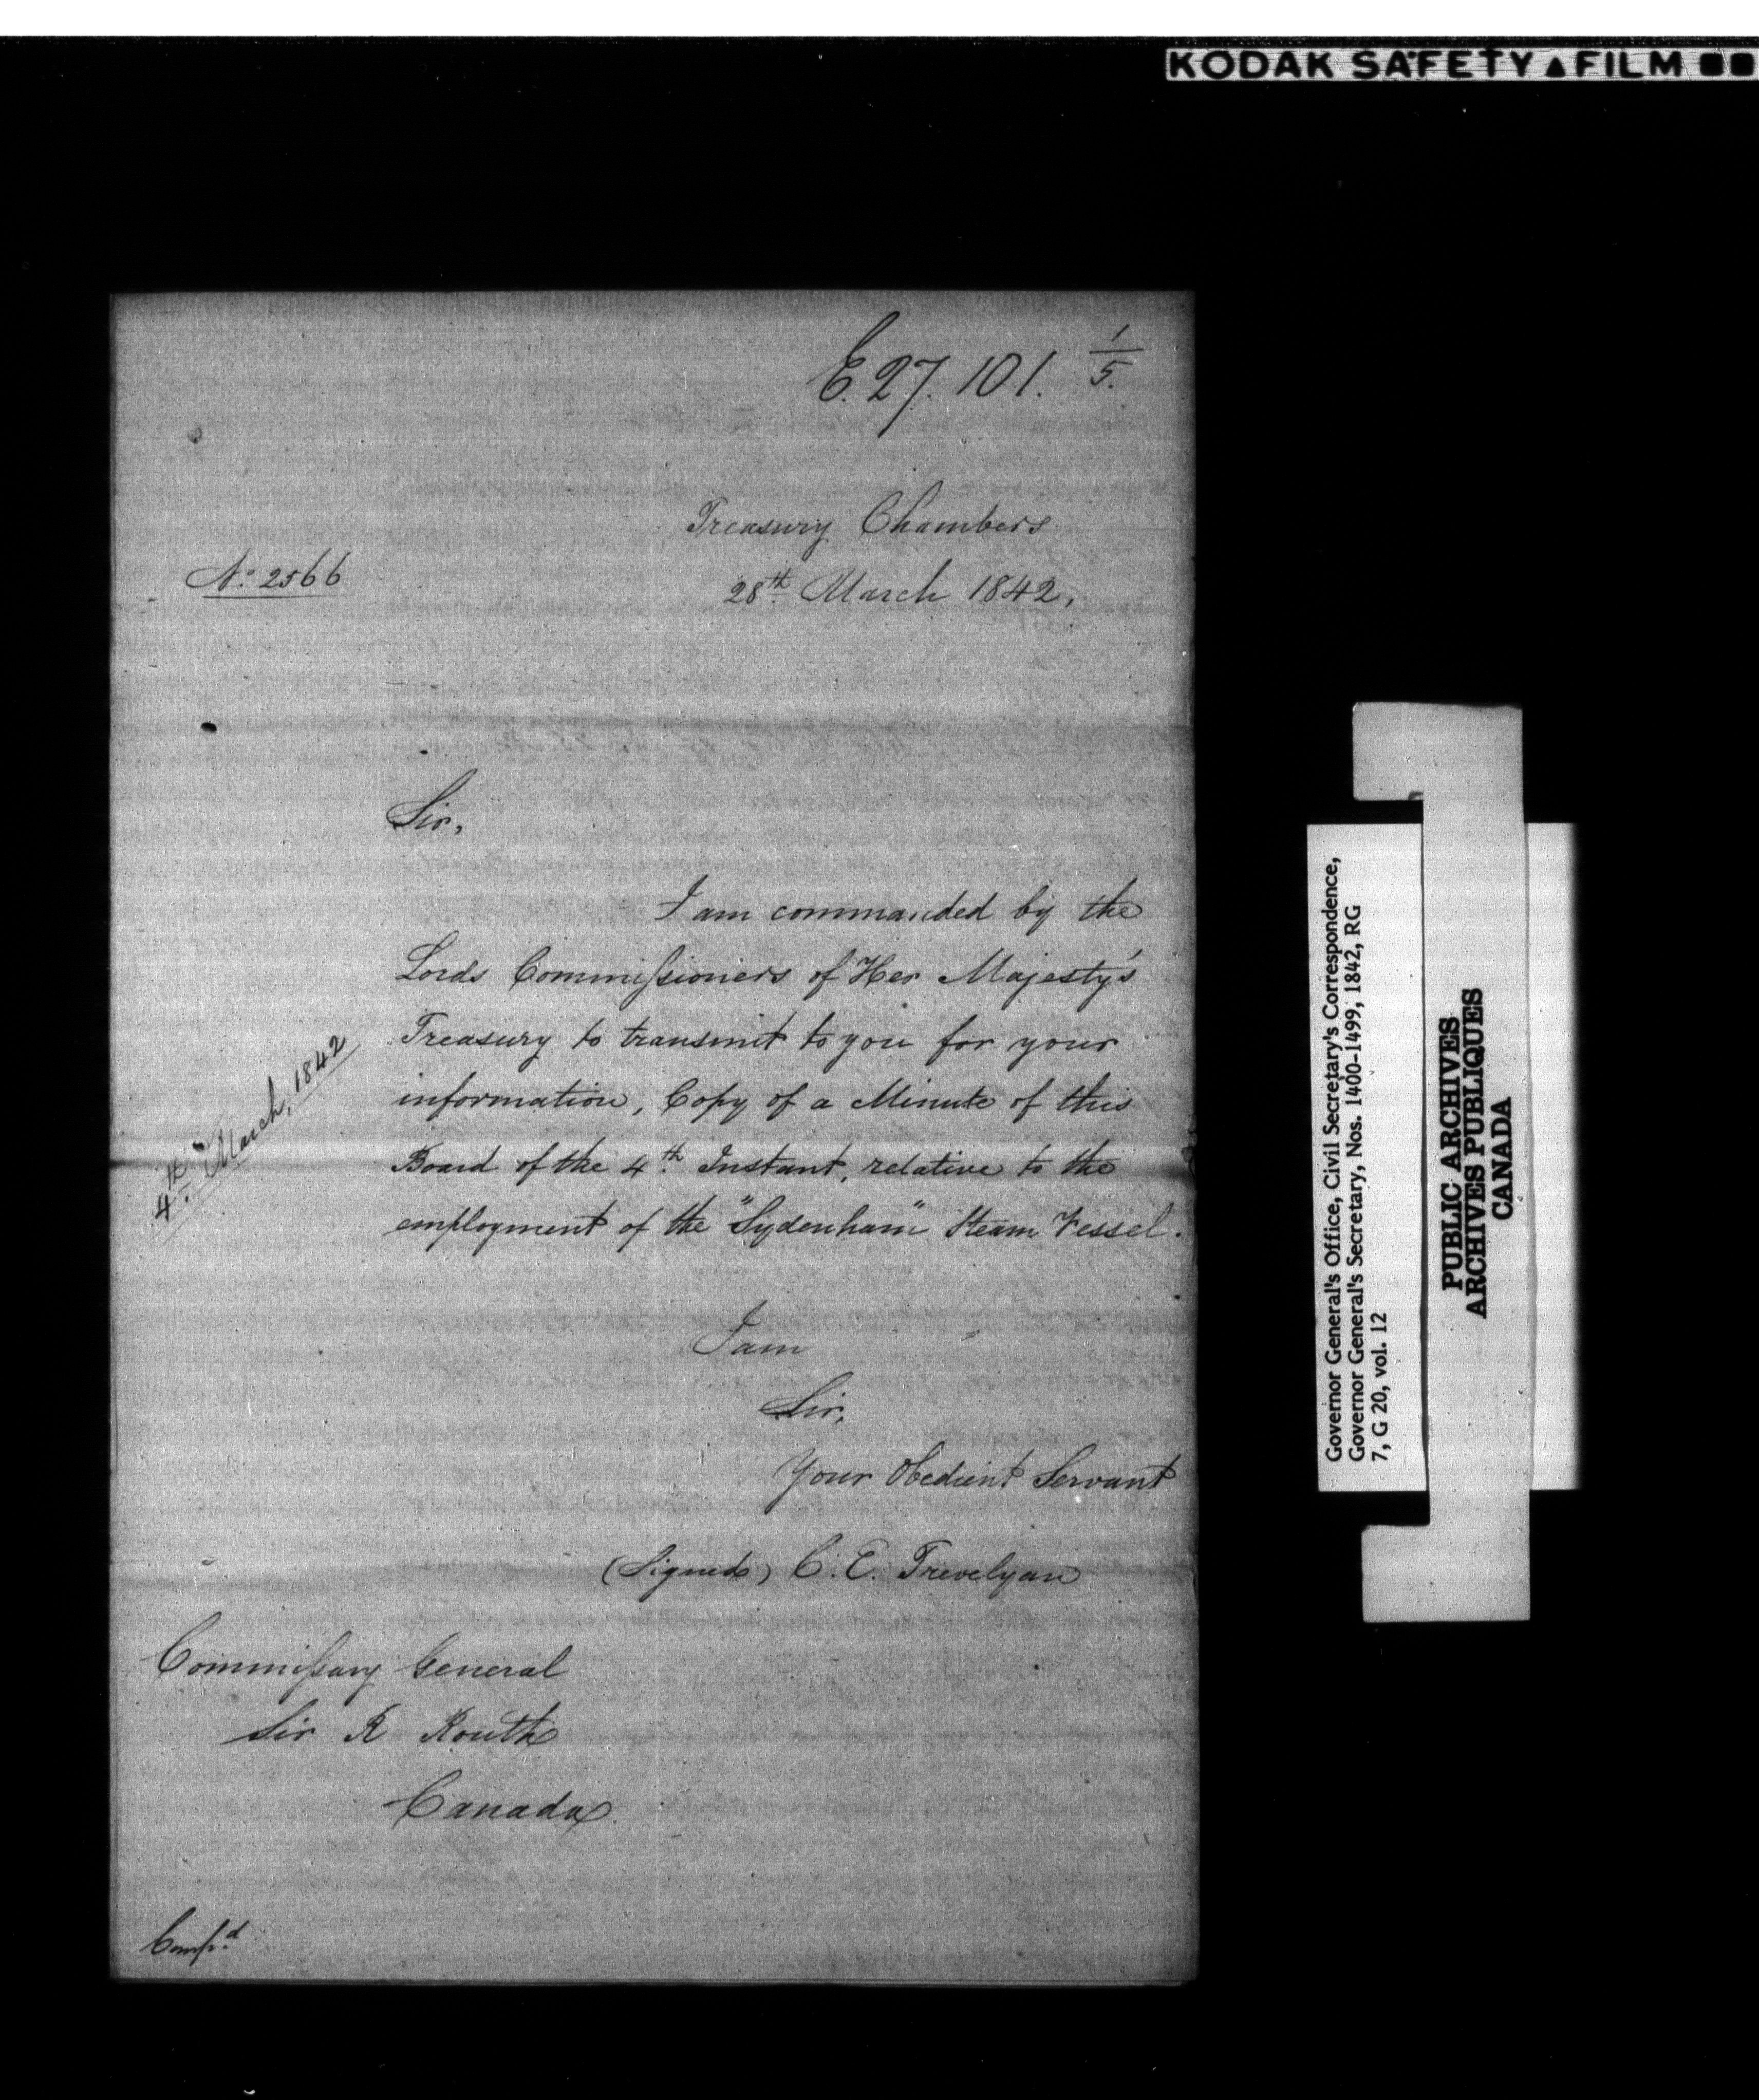 KODAK SAFETY ▲ FILM
E.27.101. 1/5.
Treasury Chambers
No. 2566
28th. March 1842,
Sir,
I am commanded by the
Lords Commissioners of Her Majesty's
Treasury to transmit to you for your
information, Copy of a Minute of this
4th. March, 1842
Board of the 4th. Instant, relative to the
employment of the "Sydenham" Steam Vessel.
I am
Sir,
Your Obedient Servant
(Signed) C. E. Trevelyan
Commissary General
Sir R Routh
Canada.
Comp.d
Governor General's Office, Civil Secretary's Correspondence,
Governor General's Secretary, Nos. 1400-1499, 1842, RG
7, G 20, vol. 12
PUBLIC ARCHIVES
ARCHIVES PUBLIQUES
CANADA